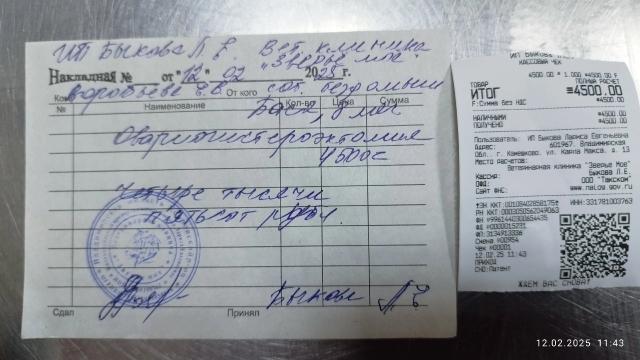 ИП Быкова Л.Е. Вет. клиника
"Зверье мое"
Накладная № от "12" 02 2025 г.
Воробьева Е.В. От кого сот. бездомыш
№ Наименование Кол-во Цена Сумма
Бася, 8 мес
Овариогистероэктомия
4500=
Четыре тысячи
пятьсот руб.
Сдал Принял Быкова Л Е
ИП Быкова Л.Е.
КАССОВЫЙ ЧЕК
4500.00 * 1.000 =4500.00
ПОЛНЫЙ РАСЧЕТ
ТОВАР
ИТОГ =4500.00
Сумма без НДС =4500.00
НАЛИЧНЫМИ =4500.00
ПОЛУЧЕНО =4500.00
Пользователь: ИП Быкова Лариса Евгеньевна
Адрес: 601967, Владимирская
Обл., г. Камешково, ул. Карла Маркса, д. 13
Место расчетов:
Ветеринарная клиника "Зверье Мое"
Кассир: Быкова Л.Е.
ОФД: ООО "Такском"
Сайт ФНС: www.nalog.gov.ru
ИНН:331781003763
Смена №00954
Чек №00001
12.02.25 11:43
ПРИХОД
СНО:Патент
ЖДЕМ ВАС СНОВА!
12.02.2025 11:43